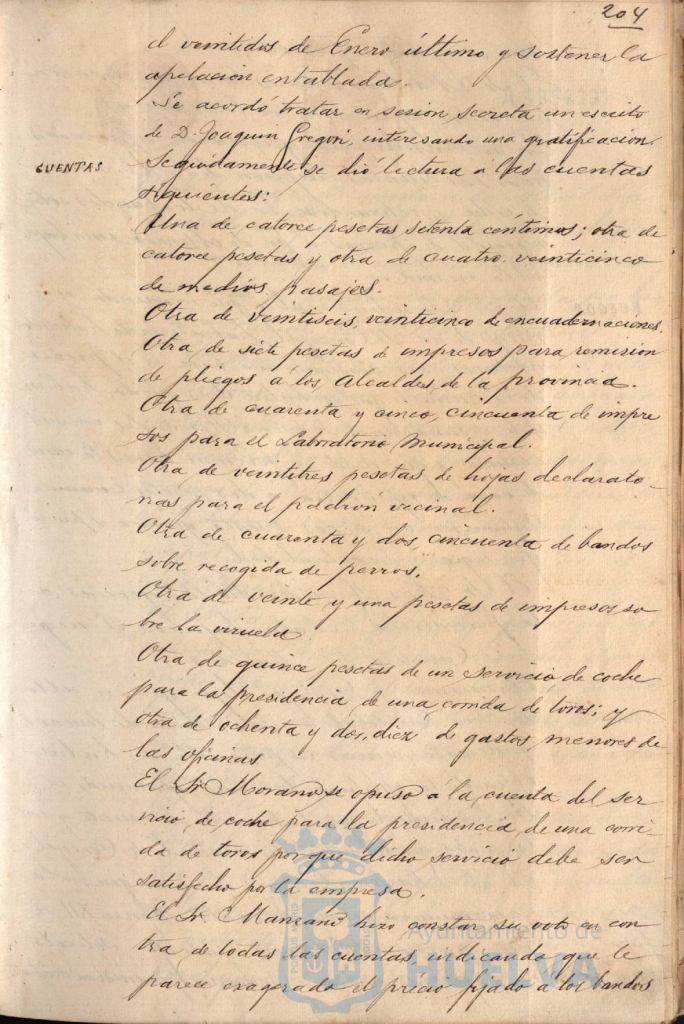 204
el veintidos de Enero último y sostener la
apelación entablada.
Se acordó tratar en sesion secreta un escrito
de D. Joaquin Gregori, interesando una gratificación.
CUENTAS
Seguidamente se dió lectura á las cuentas
siguientes:
Una de catorce pesetas setenta céntimos; otra de
catorce pesetas y otra de cuatro veinticinco
de medios pasajes.
Otra de veintiseis, veinticinco de encuadernaciones.
Otra de siete pesetas de impresos para remision
de pliegos á los Alcaldes de la provincia.
Otra de cuarenta y cinco, cincuenta de impre
sos para el Laboratorio Municipal.
Otra de veintitres pesetas de hojas declarato-
rias para el padrón vecinal.
Otra de cuarenta y dos, cincuenta de bandos
sobre recogida de perros.
Otra de veinte y una pesetas de impresos so-
bre la viruela
Otra de quince pesetas de un servicio de coche
para la presidencia de una corrida de toros; y
otra de ochenta y dos, diez de gastos menores de
las oficinas.
El Sr. Morano se opuso á la cuenta del ser
vicio de coche para la presidencia de una corri-
da de toros porque dicho servicio debe ser
satisfecho por la empresa.
El Sr. Manzano hizo constar su voto en con
tra de todas las cuentas, indicando que le
parece exagerado el précio fijado á los bandos
Ayuntamiento de
HUELVA